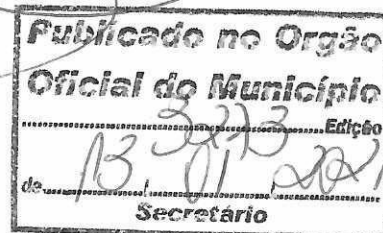 Publicado no Orgão
Oficial do Município
3273 Edição
de 13 / 01 / 2021
Secretário